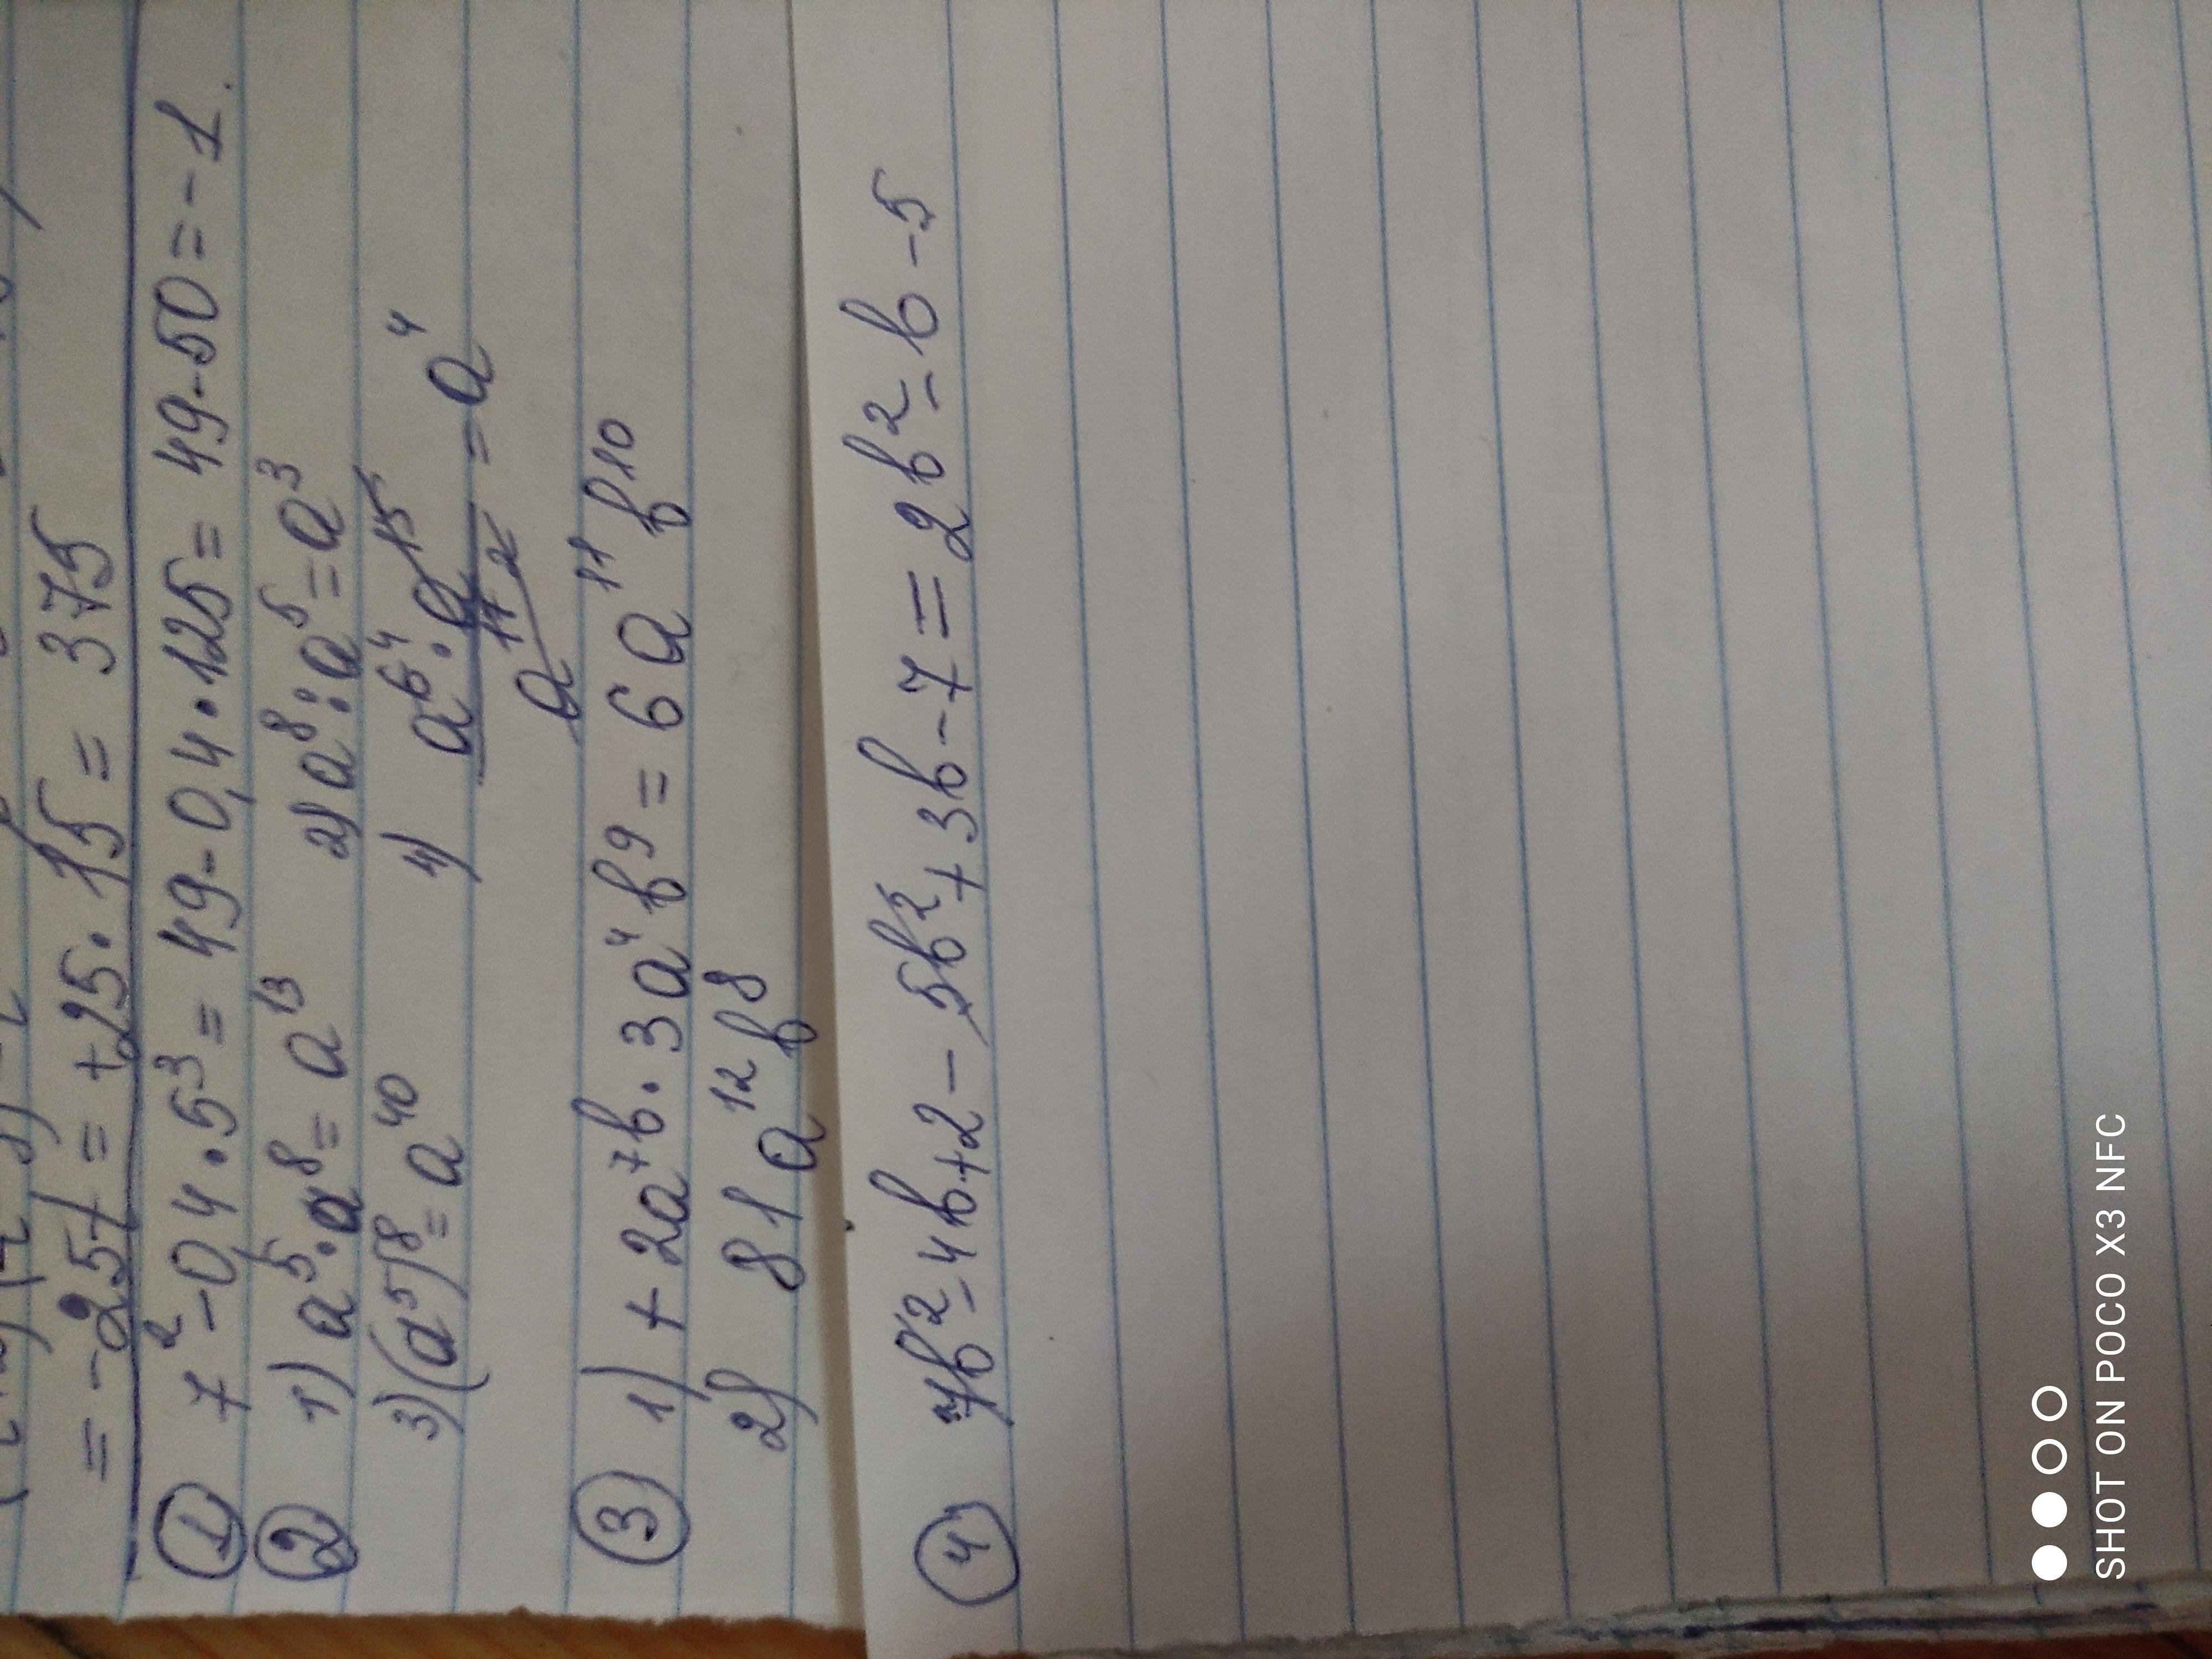 = -25 = +25 · 15 = 375
① 7² - 0,4 · 5³ = 49 - 0,4 · 125 = 49 - 50 = -1.
② 1) a⁵ · a⁸ = a¹³ 2) a⁸ : a⁵ = a³
3) (a⁵)⁸ = a⁴⁰ 4) a⁶ ⁴ · a¹⁵ = a⁴
a¹⁷ ²
③ 1) + 2a⁷b · 3a⁴b⁹ = 6a¹¹b¹⁰
2) 81a¹²b⁸
④ 7b² - 4b + 2 - 5b² + 3b - 7 = 2b² - b - 5
SHOT ON POCO X3 NFC